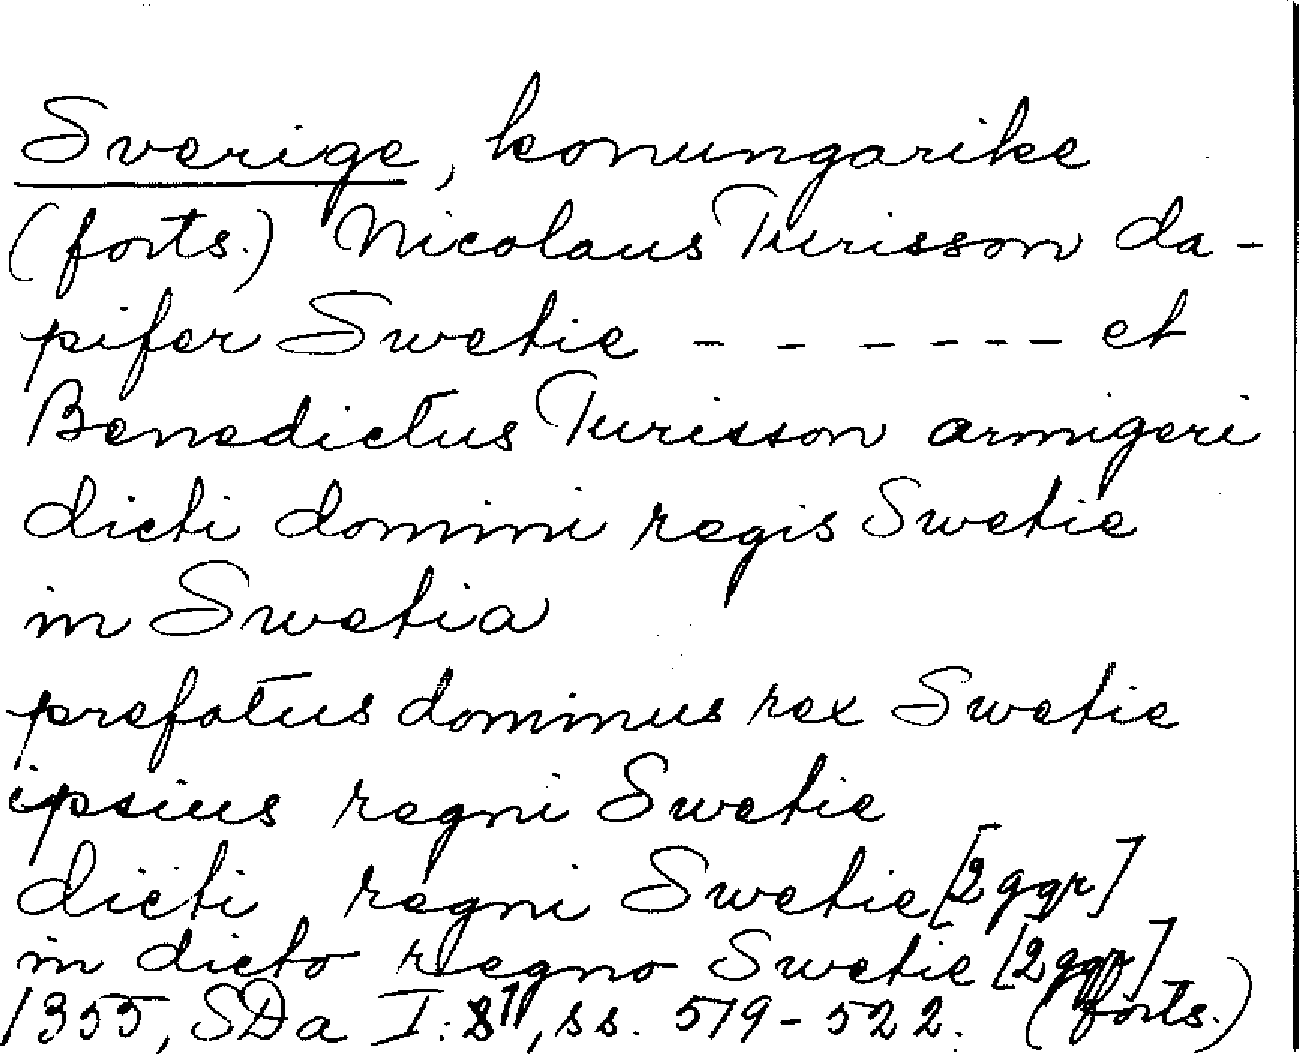 Sverige, konungarike
(forts.) Nicolaus Turisson da-
pifer Swetie - - - - - - - et
Benedictus Turisson armigeri
dicti domini regis Swetie
in Swetia
prefatus dominus rex Swetie
ipsius regni Swetie
dicti regni Swetie [2 ggr]
in dicto regno Swetie [2 ggr]
1355, SDa I: , ss. 519-522. (forts.)